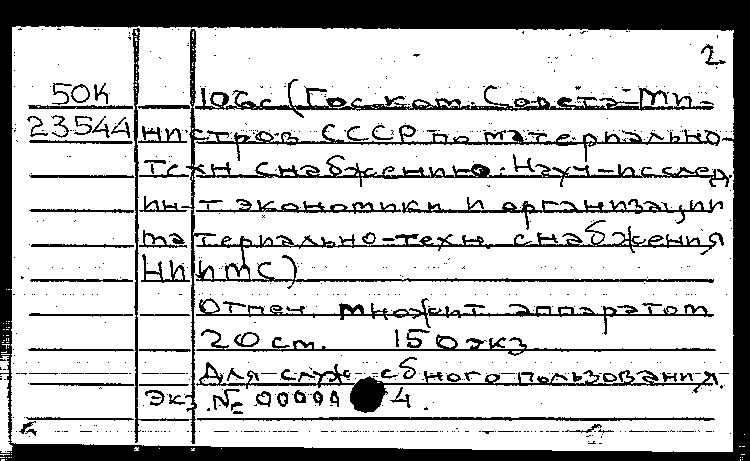 2
50К 106с (Гос. ком. Совета Ми-
23544 нистров СССР по материально-
техн. снабжению. Науч.-исслед.
ин-т экономики и организации
материально-техн. снабжения
НИИМС)
Отпеч. множит. аппаратом
20 см. 150 экз
Для служебного пользования
Экз. № 00000 4.